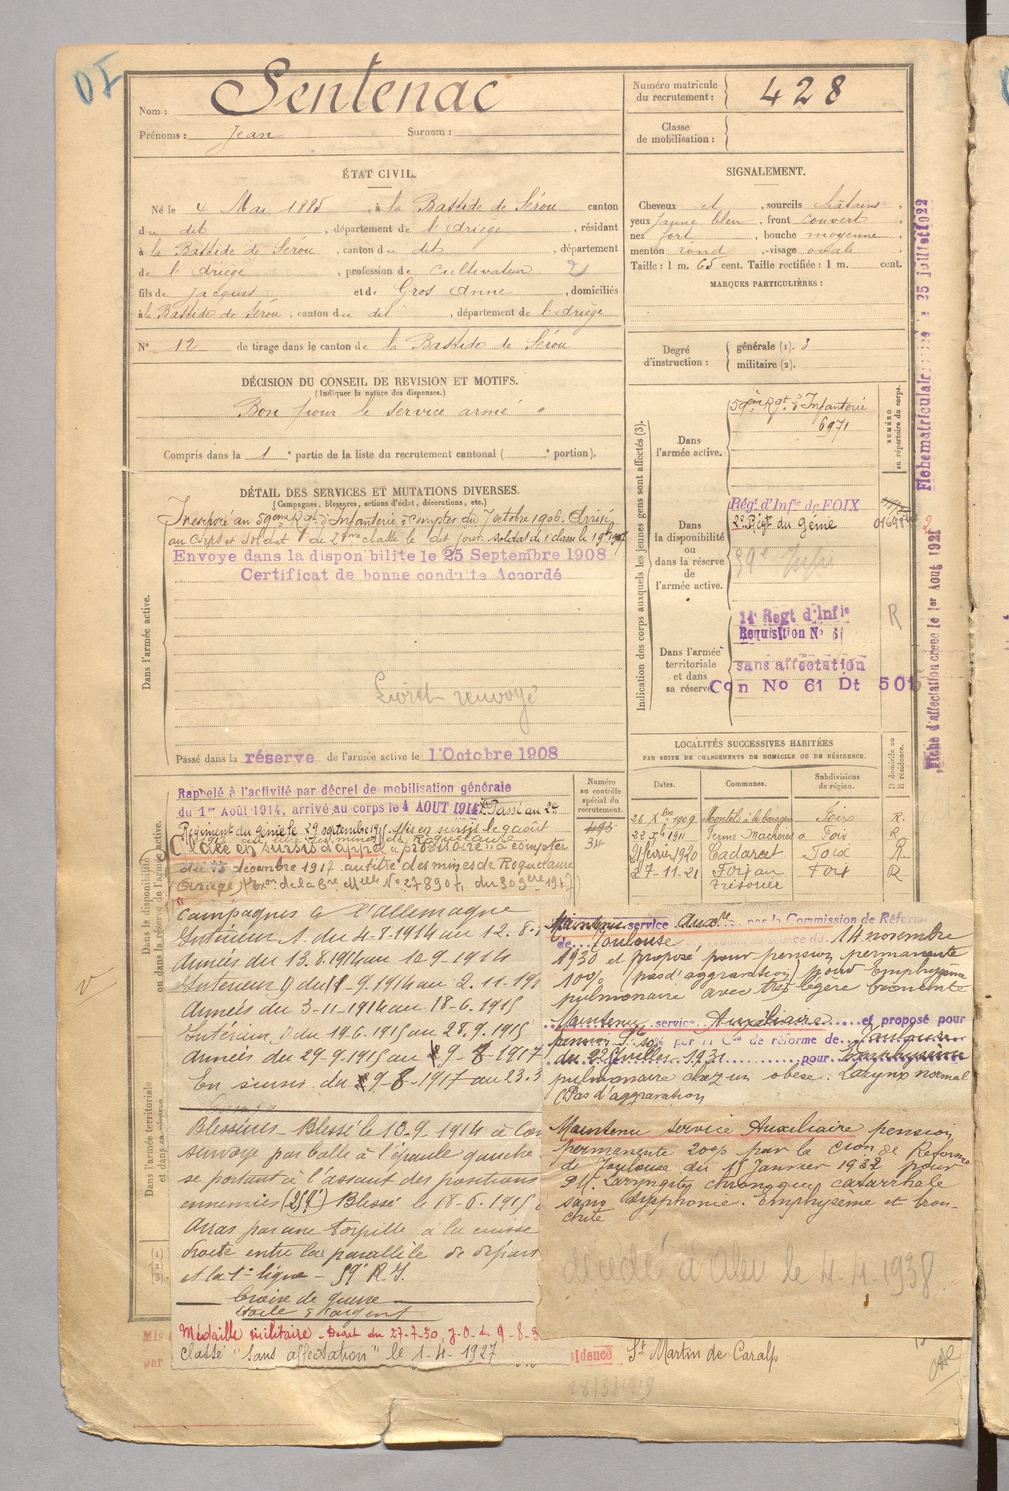 Nom : Sentenac
Prénoms : Jean Surnom :
Numéro matricule du recrutement : 428
Classe de mobilisation :
ÉTAT CIVIL.
Né le 4 Mai 1885, à la Bastide de Sérou canton
du dit, département de l'Ariège, résidant
à la Bastide de Sérou, canton du dit, département
de l'Ariège, profession de Cultivateur
fils de Jacques et de Gros Anne, domiciliés
à la Bastide de Sérou, canton du dit, département de l'Ariège
N° 12 de tirage dans le canton de la Bastide de Sérou
SIGNALEMENT.
Cheveux et, sourcils châtains,
yeux jaune bleu, front couvert
nez fort, bouche moyenne
menton rond, visage ovale
Taille : 1 m. 65 cent. Taille rectifiée : 1 m. cent.
MARQUES PARTICULIÈRES :
Degré d'instruction : générale (1). 3
militaire (2).
DÉCISION DU CONSEIL DE REVISION ET MOTIFS.
(Indiquer la nature des dispenses.)
Bon pour le service armé
Compris dans la 1e partie de la liste du recrutement cantonal ( e portion).
DÉTAIL DES SERVICES ET MUTATIONS DIVERSES.
(Campagnes, blessures, actions d'éclat, décorations, etc.)
Dans l'armée active.
Incorporé au 59ème Rgt d'Infanterie à compter du 7 octobre 1906. Arrivé
au corps et soldat de 2ème classe le dit jour. soldat de 1 classe le
Envoye dans la disponibilite le 25 Septembre 1908
Certificat de bonne conduite Accordé
Livret renvoyé
Passé dans la réserve de l'armée active le 1 Octobre 1908
Indication des corps auxquels les jeunes gens sont affectés (3).
NUMÉRO au répertoire du corps.
Dans l'armée active.
59ème Rgt d'Infanterie
6971
Dans la disponibilité ou dans la réserve de l'armée active.
Rég. d'Infie de FOIX
2e Régt du Génie
59e Infie
Dans l'armée territoriale et dans sa réserve
14 Regt d'Infie
Requisition N° 6
R
sans affectation
Con No 61 Dt 501
Fiche matriculaire
25 juillet 1922
Fiche d'affectation créée le 1er Aout 192
LOCALITÉS SUCCESSIVES HABITÉES
PAR SUITE DE CHANGEMENTS DE DOMICILE OU DE RÉSIDENCE.
Dates. Communes. Subdivisions de région. D domicile ou R résidence.
26 Xbre 1909 Foix R.
22 Xbre 1911 Foix R
21 février 1920 Cadarcet Foix R
27-11-21 Foix R
Numéro au contrôle spécial du recrutement.
Dans la disponibilité ou dans la réserve de l'armée active.
Dans l'armée territoriale et dans sa réserve
Raphelé à l'activité par décret de mobilisation générale
du 1er Août 1914, arrivé au corps le 4 AOUT 1914 Passé au 2e
Régiment du génie le 29 septembre 1915 Mis en sursis le 9 août
décembre 1917 au titre des mines de Roquelaure
(Ariège)
Campagnes à l'allemagne
Intérieur du 4-8-1914 au 12.8-1
Armées du 13.8.1914 au 10.9-1914
Intérieur du 11-9.1914 au 2.11-19
Armées du 3-11-1914 au 18-6.1915
Intérieur du 19.6.1915 au 28.9.1915
Armées du 29.9.1915 au 9-8-1917
En sursis du 9-8-1917 au 23.3
Blessures - Blessé le 10.9-1914 à
par balle à l'épaule gauche
se portant à l'assaut des positions
ennemies (59e) Blessé le 18-6.1915
Arras par une torpille à la cuisse
droite entre la parallèle de départ
et la 1e ligne - 59e R.I.
Croix de guerre
étoile d'argent
Médaille militaire - Décret du 27-7-30, J.O. 9-8-3
Classé "sans affectation" le 1-4-1927
Maintenu service Auxre par la Commission de Réforme
de Toulouse 14 novembre
1930 et proposé pour pension permanente
10% (pas d'aggravation) pour Emphysème
pulmonaire avec très légère bronchite
Maintenu service Auxiliaire et proposé pour
pension 10% par la Con de réforme de
du 22 juillet 1931 pour Emphysème
pulmonaire chez un obèse. Larynx normal
(Pas d'aggravation
Maintenu Service Auxiliaire pension
permanente 20% par la Cion de Réforme
de Toulouse du 15 Janvier 1932 pour
Laryngite chronique catarrhale
sans dysphonie. Emphysème et bron-
chite
décédé à Aleu le 4.4.1938
Mis
par
résidence St Martin de Caralp